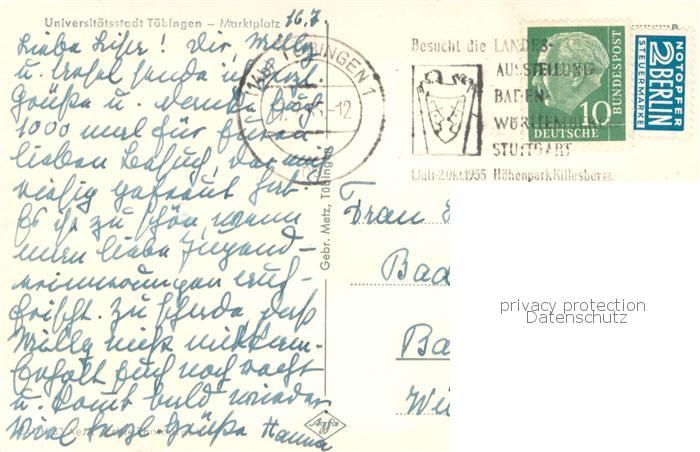 Universitätsstadt Tübingen – Marktplatz
16.7.
Liebe Liesel! Dir, Willy
u. sende ich herzl.
Grüße u. danke Euch
1000 mal für Euren
lieben Besuch, der mich
riesig gefreut hat.
Es ist zu schön, wenn
man liebe Jugend-
erinnerungen auf-
frischt. Zu schade, daß
Willy nicht mitkam.
Erholt Euch noch recht
u. kommt bald wieder
Viel herzl. Grüße Hanna
TÜBINGEN 1
-12
Besucht die LANDES-
AUSSTELLUNG
BADEN-
WÜRTTEMBERG
STUTTGART
1.Juli-2.Okt.1955 Höhenpark Killesberg
10
DEUTSCHE
BUNDESPOST
NOTOPFER
2 BERLIN
STEUERMARKE
Gebr. Metz, Tübingen
Frau
Bad
Ba
Wü
Agfa
privacy protection
Datenschutz